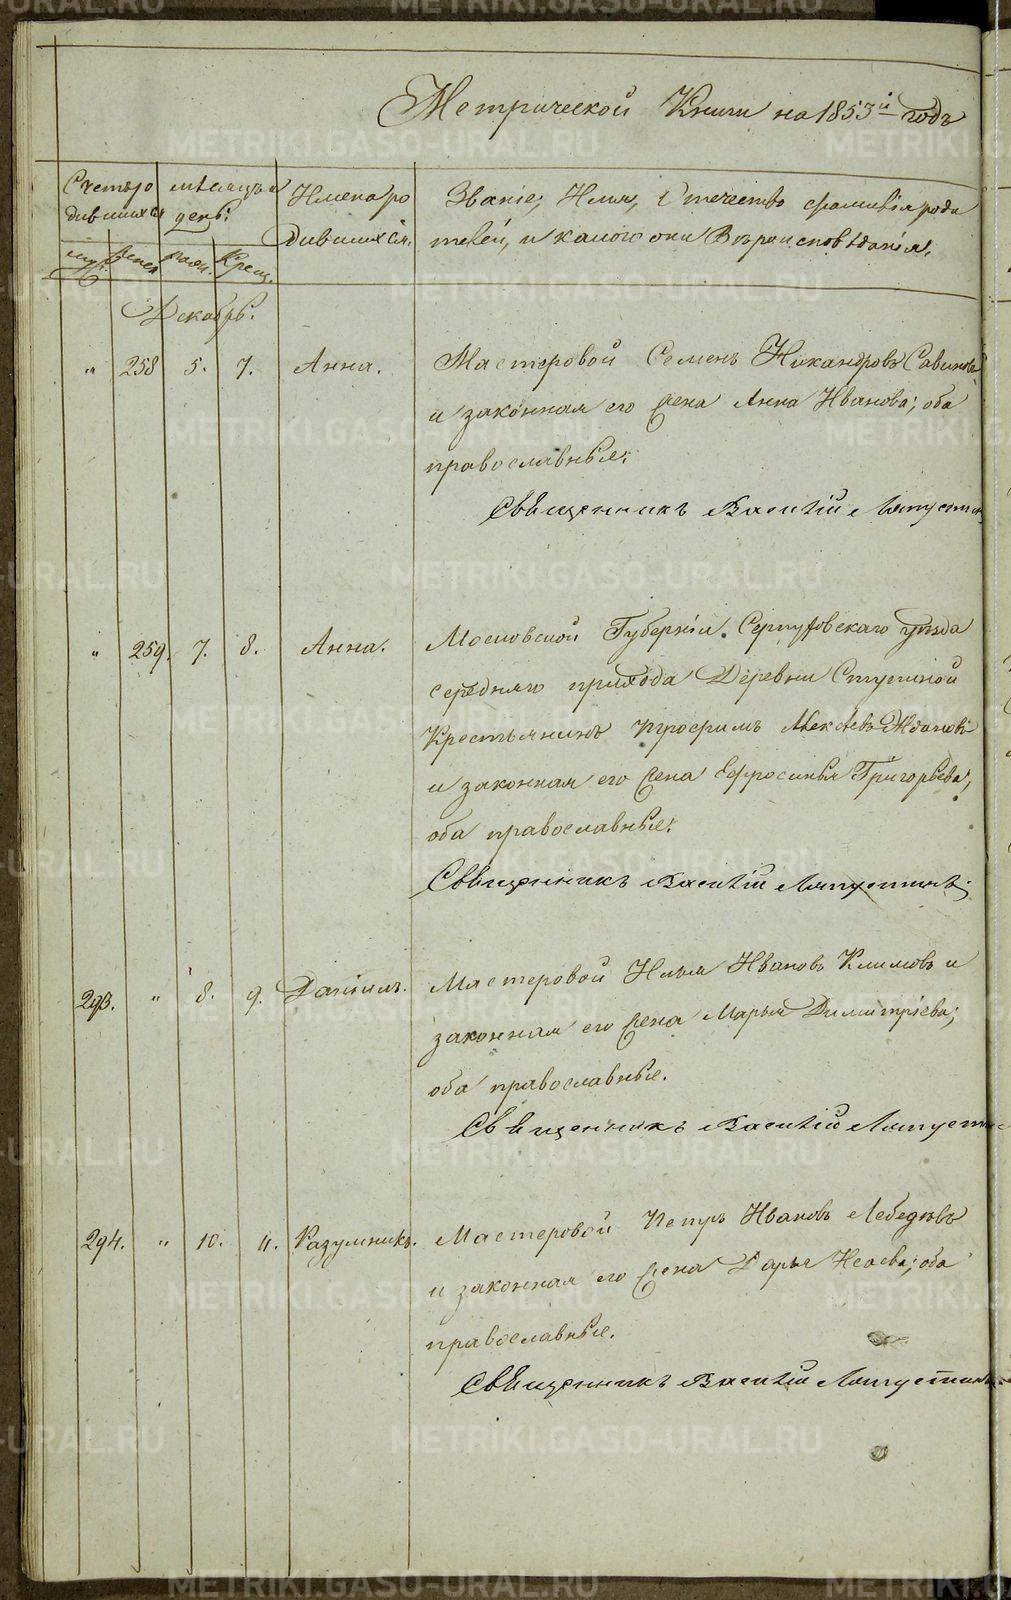 Метрической Книги на 1853й годъ
Счетъ ро
дившихся
мѣсяцъ и
день:
Имена ро
дившихся.
Званіе, Имя, Отчество фамилія роди
телей, и какого они Вѣроисповѣданія,
муж. женск рожд. Крещ.
Декабрь.
" 258 5. 7. Анна. Мастеровой Семенъ Никандровъ Савиновъ
и законная его жена Анна Иванова; оба
православные;
Священникъ Василій Ляпустин
" 259. 7. 8. Анна. Московской Губерніи. Серпуховскаго уѣзда
прихода Деревни Ступиной
Крестьянинъ Трофимъ Алексѣевъ Ждановъ
и законная его жена Ефросинья Григорьева;
оба православные;
Священникъ Василій Ляпустинъ;
293. " 8. 9. Даніилъ. Мастеровой Илья Ивановъ Климовъ и
законная его жена Марья Димитріева;
оба православные.
Священникъ Василій Ляпусти
294. " 10. 11. Разумникъ. Мастеровой Петръ Ивановъ Лебедевъ
и законная его жена Дарья Исаева; оба
православные.
Священникъ Василій Ляпустинъ
METRIKI.GASO-URAL.RU